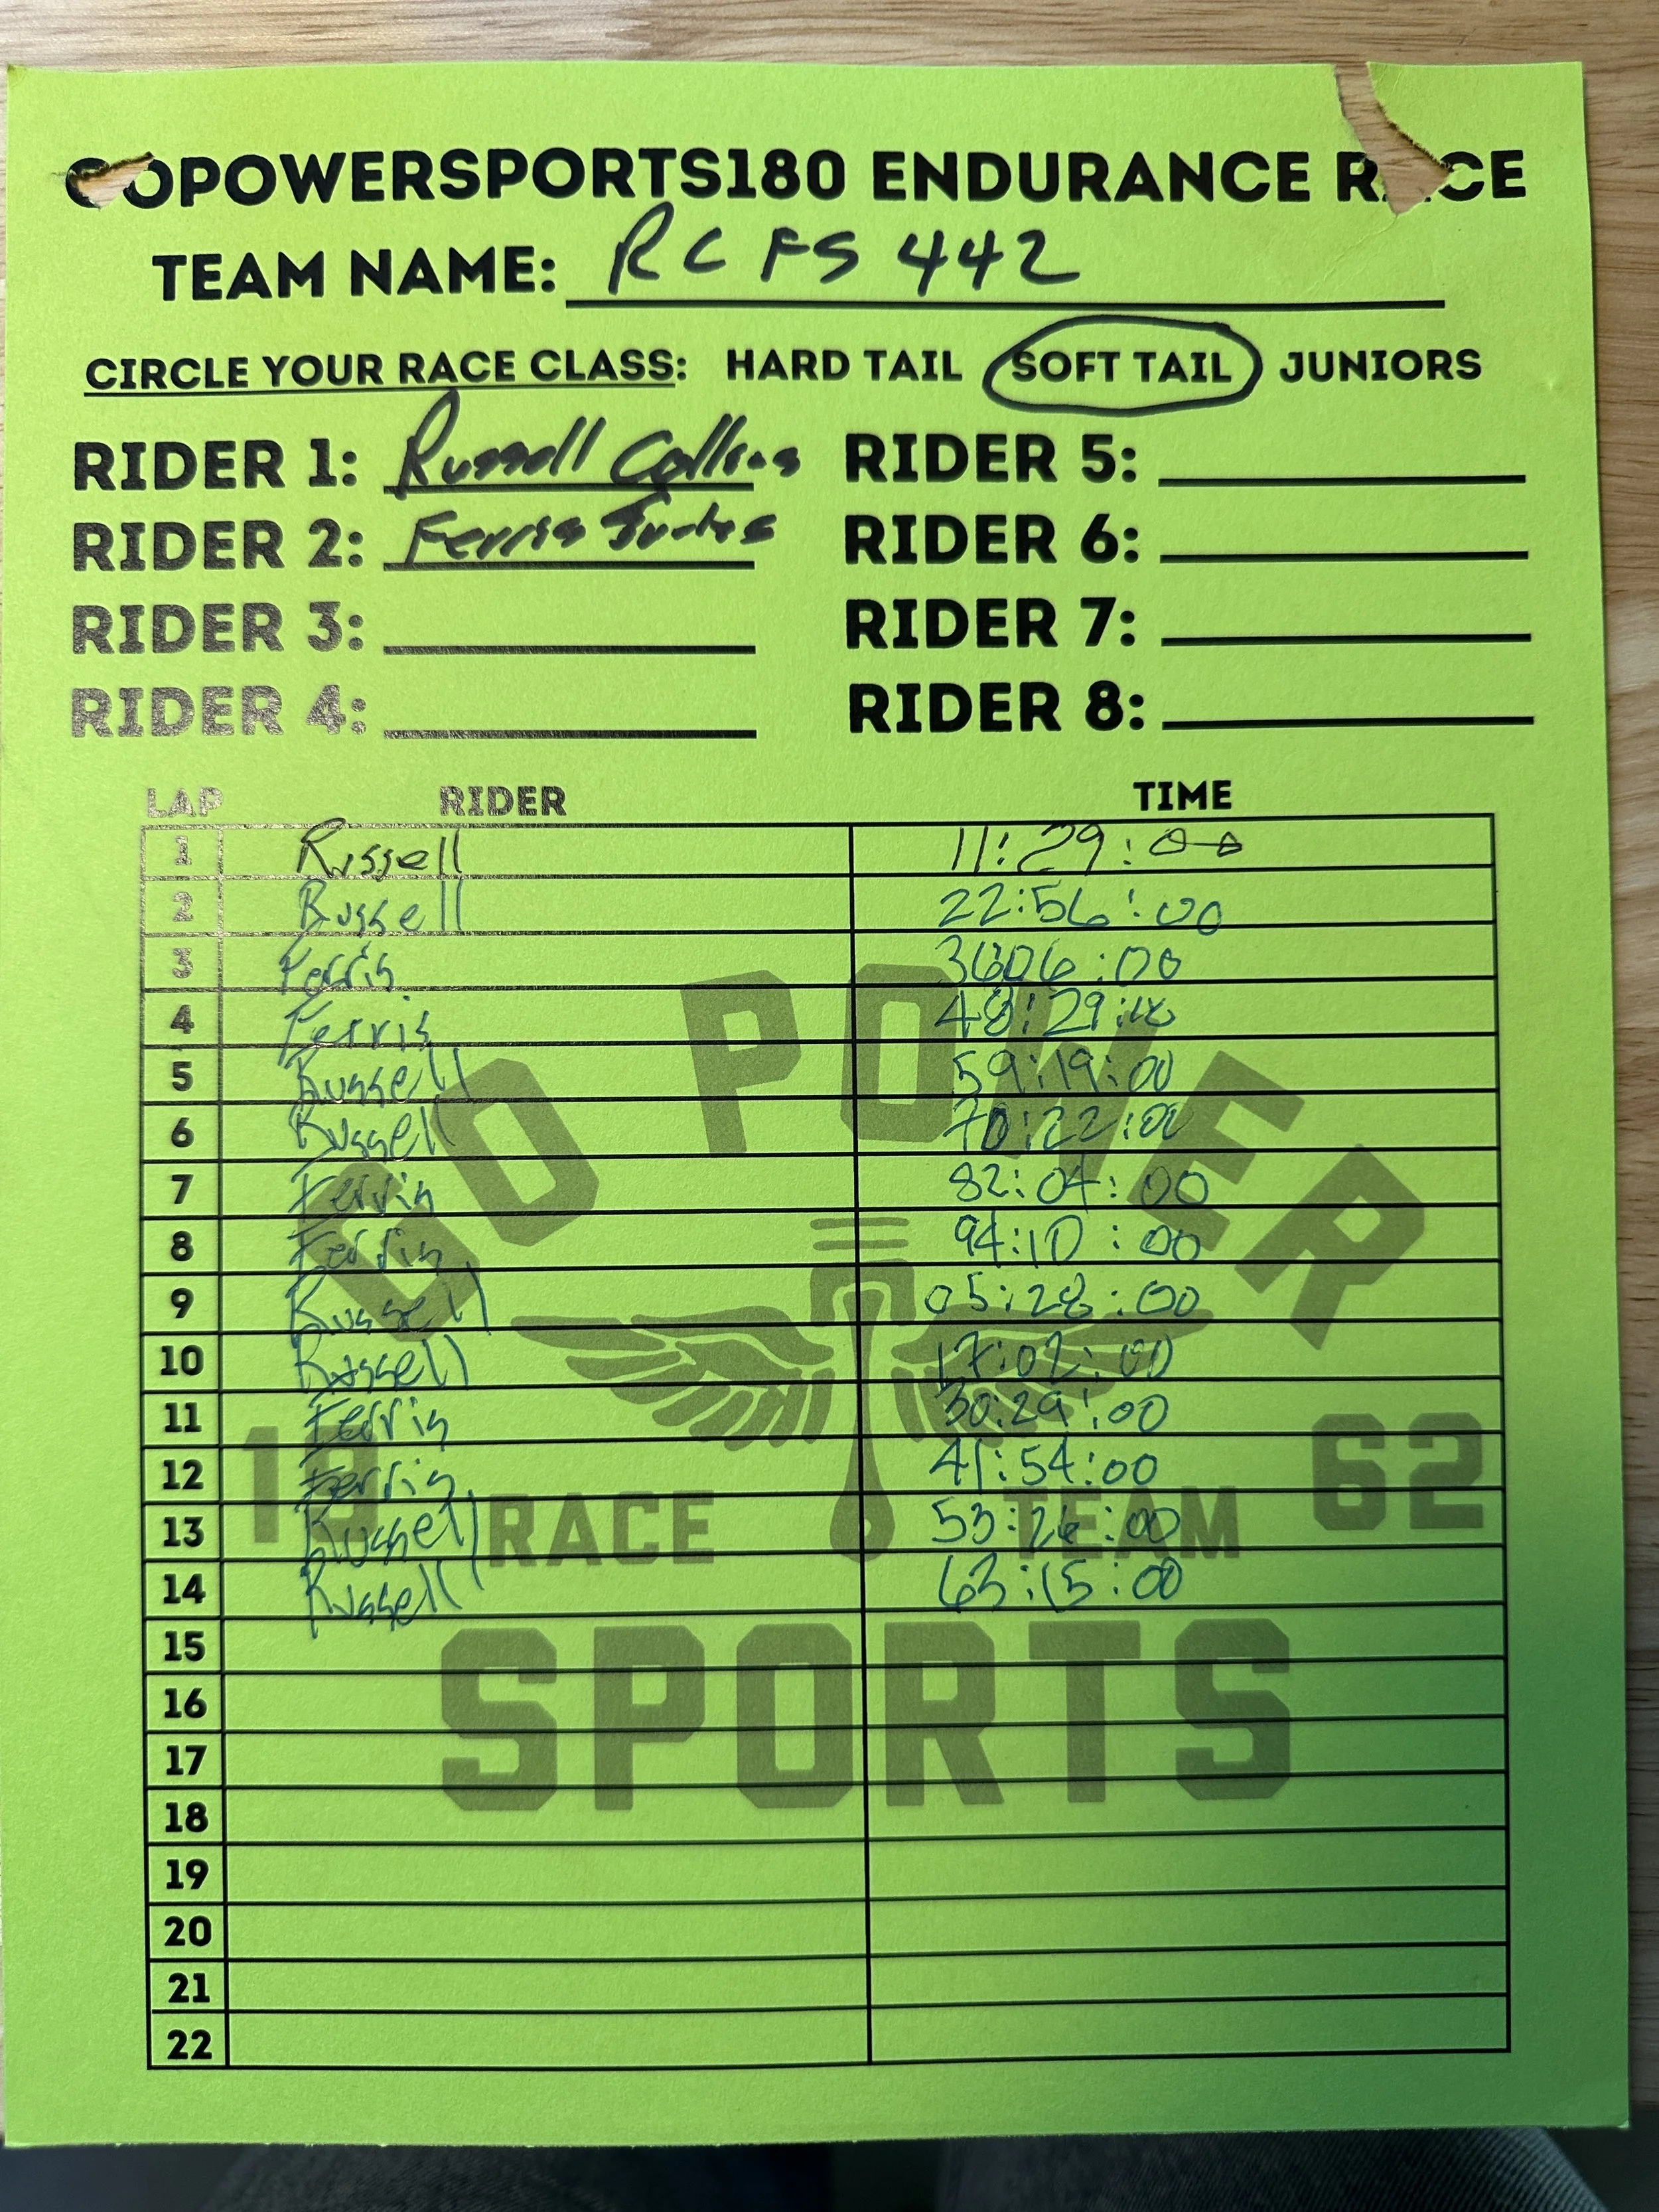 GOPOWERSPORTS180 ENDURANCE RACE
TEAM NAME: RCFS 442
CIRCLE YOUR RACE CLASS: HARD TAIL SOFT TAIL JUNIORS
RIDER 1: Russell Collins RIDER 5:
RIDER 2: Ferris RIDER 6:
RIDER 3: RIDER 7:
RIDER 4: RIDER 8:
LAP RIDER TIME
1 Russell 11:29:00
2 Russell 22:56:00
3 Ferris 3606:00
4 Ferris 48:29:00
5 Russell 59:19:00
6 Russell 70:22:00
7 Ferris 82:04:00
8 Ferris 94:10:00
9 Russell 05:28:00
10 Russell 17:02:00
11 Ferris 30:29:00
12 Ferris 41:54:00
13 Russell 53:26:00
14 Russell 63:15:00
15
16
17
18
19
20
21
22
GO POWER
19 62
RACE TEAM
SPORTS